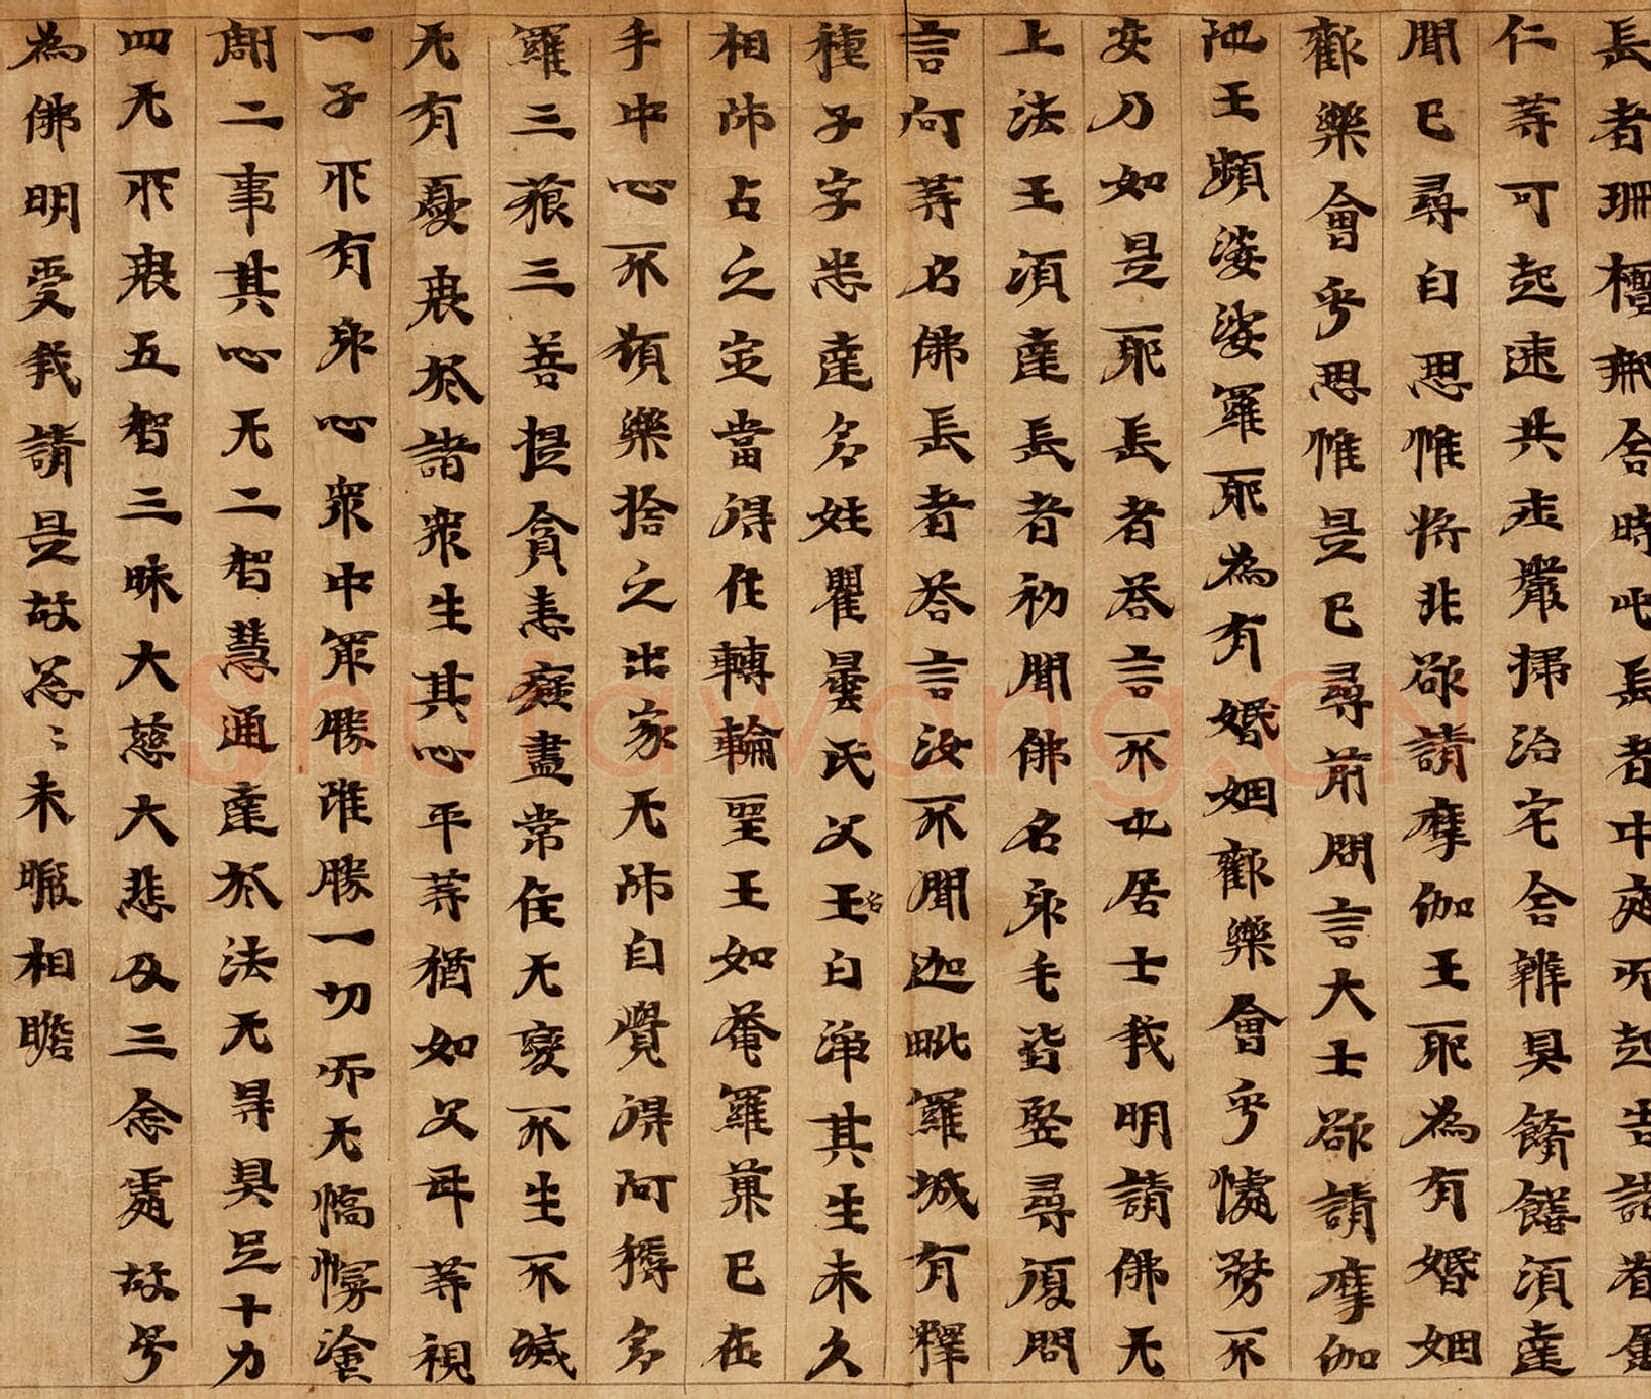 長者珊檀那舍時此長者中夜而起告諸眷屬
仁等可起速共庄嚴掃治宅舍辨具餚饍須達
聞已尋自思惟將非欲請摩伽王耶為有婚姻
歡樂會乎思惟是已尋前問言大士欲請摩伽
陁王頻婆娑羅耶為有婚姻歡樂會乎懅務不
安乃如是耶長者荅言不也居士我明請佛无
上法王須達長者初聞佛名身毛皆竪尋復問
言何等名佛長者荅言汝不聞迦毗羅城有釋
種子字悉達多姓瞿曇氏父王名白淨其生未久
相師占之定當得作轉輪聖王如菴羅菓已在
手中心不願樂捨之出家无師自覺得阿耨多
羅三藐三菩提貪恚癡盡常住无變不生不滅
无有憂畏於諸衆生其心平等猶如父母等視
一子所有身心衆中最勝雖勝一切而无憍慢塗
割二事其心无二智慧通達於法无㝵具足十力
四无所畏五智三昧大慈大悲及三念處故号
為佛明受我請是故忩〻未暇相瞻
shufawang.CN